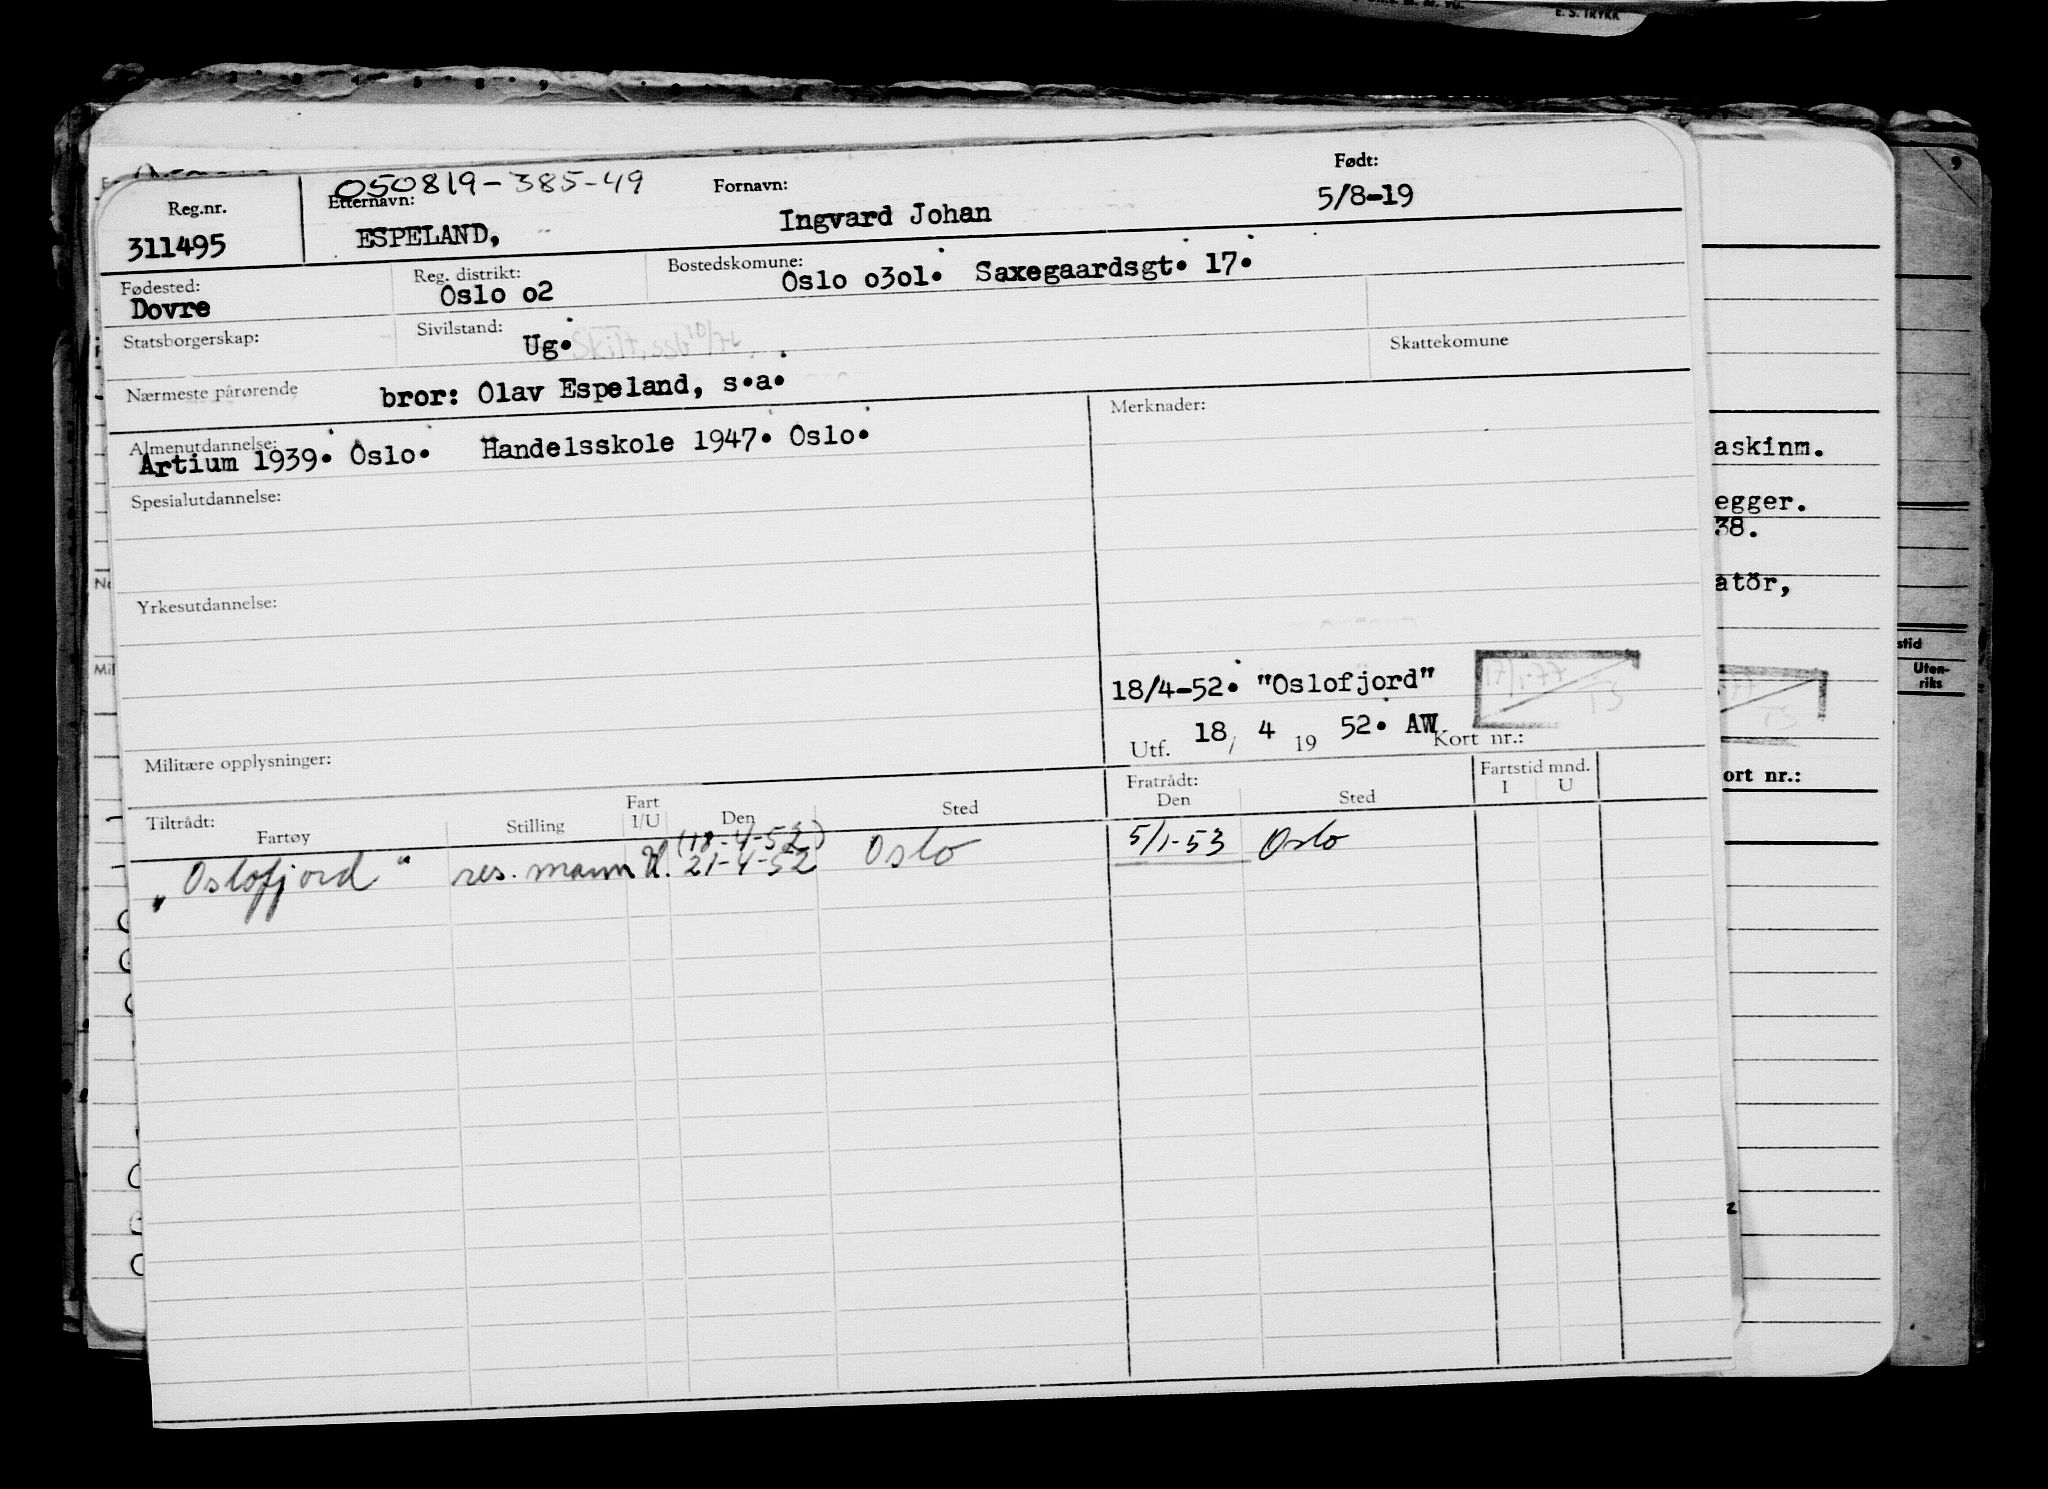 E. S. TRYKK
050819-385-49
Reg.nr. Etternavn: Fornavn: Født:
311495 ESPELAND, Ingvard Johan 5/8-19
Fødested: Reg. distrikt: Bostedskomune:
Dovre Oslo o2 Oslo o3o1. Saxegaardsgt. 17.
Statsborgerskap: Sivilstand: Ug. Skattekomune
Nærmeste pårørende bror: Olav Espeland, s.a.
Almenutdannelse: Merknader:
Artium 1939. Oslo. Handelsskole 1947. Oslo.
askinm.
Spesialutdannelse:
egger.
38.
Yrkesutdannelse:
atör,
stid
Uten-
riks
18/4-52. "Oslofjord" 17/1-77
TS
Utf. 18/ 4 19 52. AW Kort nr.:
Militære opplysninger:
ort nr.:
Tiltrådt: Fratrådt: Fartstid mnd.
Fartøy Stilling Fart I/U Den Sted Den Sted I U
(18-4-52)
„Oslofjord" res. mann U. 21-4-52 Oslo 5/1-53 Oslo